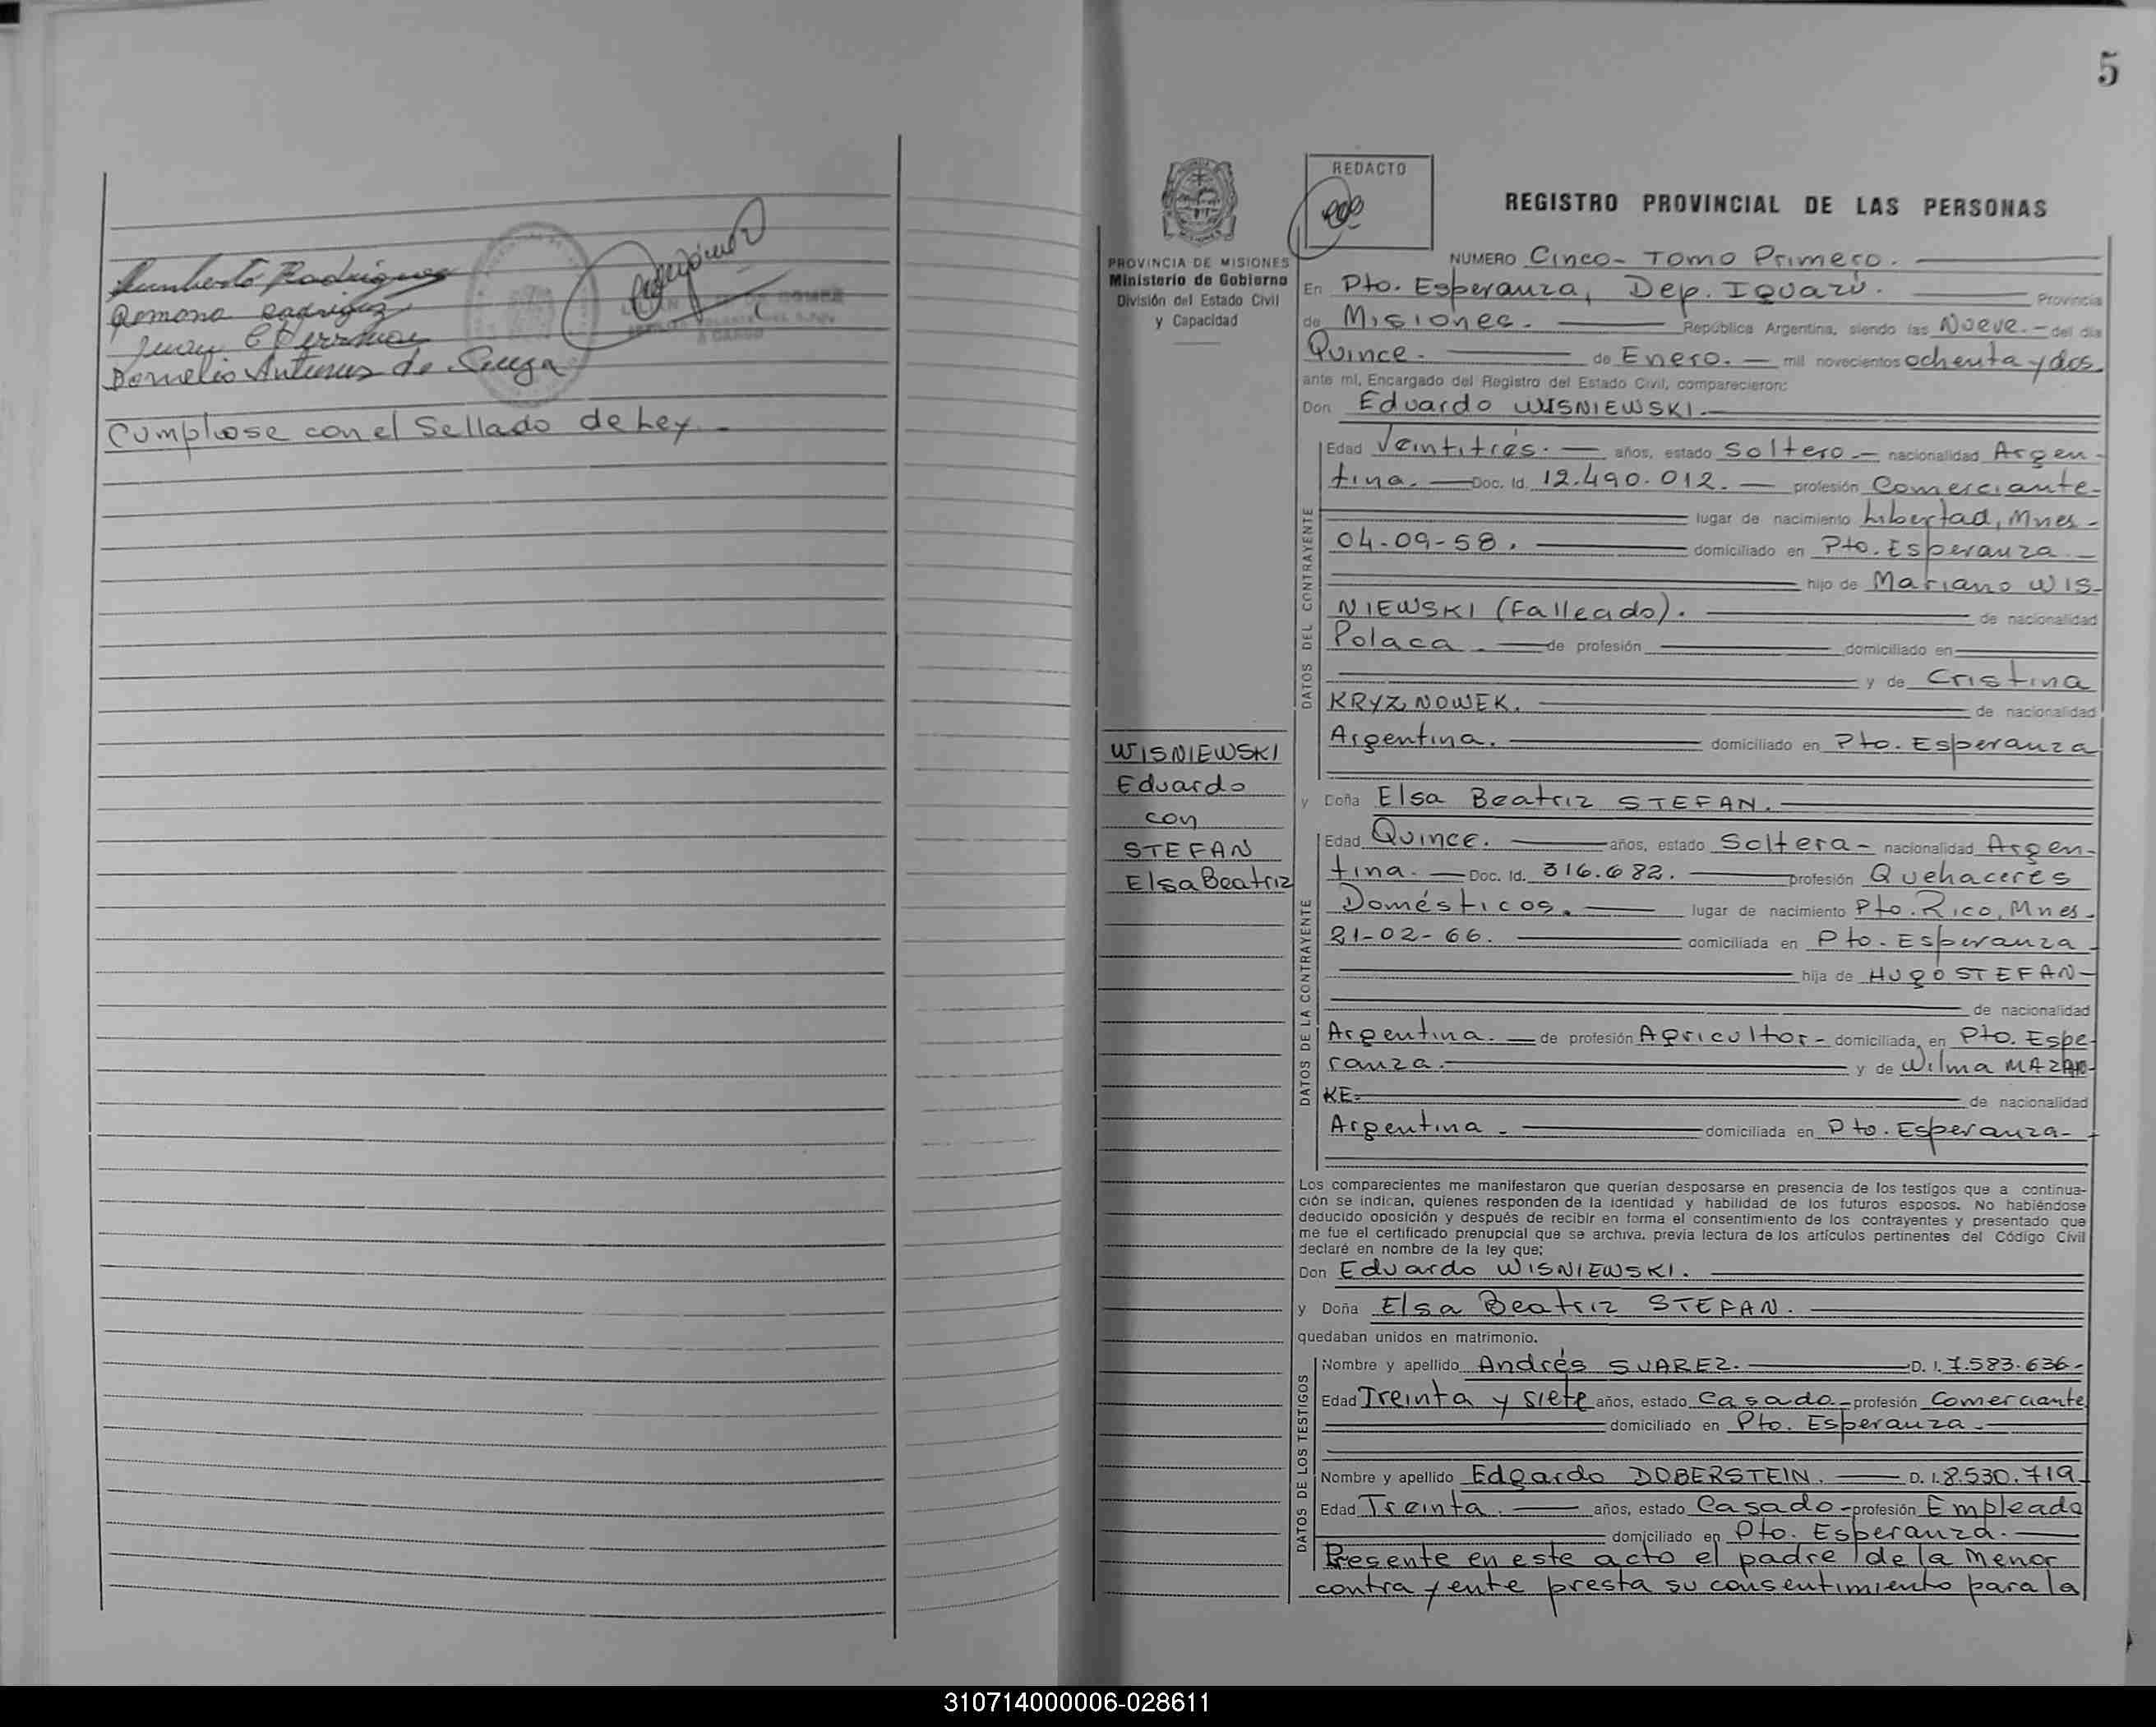 Humberto Rodriguez
Romona Rodriguez
Juan
Cumpliose con el Sellado de Ley.-
5
REDACTO
REGISTRO PROVINCIAL DE LAS PERSONAS
PROVINCIA DE MISIONES
Ministerio de Gobierno
División del Estado Civil
y Capacidad
NUMERO Cinco- Tomo Primero.
En Pto. Esperanza, Dep. Iguazú. Provincia
de Misiones. República Argentina, siendo las Nueve.- del día
Quince. de Enero. mil novecientos ochenta y dos
ante mí, Encargado del Registro del Estado Civil, comparecieron:
Don Eduardo WISNIEWSKI.
DATOS DEL CONTRAYENTE
Edad Veintitrés. años, estado Soltero.- nacionalidad Argen-
tina. Doc. Id. 12.490.012. profesión Comerciante-
lugar de nacimiento Libertad, Mnes-
04-09-58. domiciliado en Pto. Esperanza.-
hijo de Mariano WIS-
NIEWSKI (Fallecido). de nacionalidad
Polaca. de profesión domiciliado en
y de Cristina
KRYZNOWEK. de nacionalidad
Argentina. domiciliado en Pto. Esperanza
WISNIEWSKI
Eduardo
con
STEFAN
Elsa Beatriz
y Doña Elsa Beatriz STEFAN.
DATOS DE LA CONTRAYENTE
Edad Quince. años, estado Soltera- nacionalidad Argen-
tina. Doc. Id. 316.682. profesión Quehaceres
Domésticos. lugar de nacimiento Pto. Rico, Mnes-
21-02-66. domiciliada en Pto. Esperanza-
hija de Hugo STEFAN-
de nacionalidad
Argentina. de profesión Agricultor- domiciliada en Pto. Espe-
ranza. y de Wilma
KE- de nacionalidad
Argentina. domiciliada en Pto. Esperanza-
Los comparecientes me manifestaron que querían desposarse en presencia de los testigos que a continua-
ción se indican, quienes responden de la identidad y habilidad de los futuros esposos. No habiéndose
deducido oposición y después de recibir en forma el consentimiento de los contrayentes y presentado que
me fue el certificado prenupcial que se archiva, previa lectura de los artículos pertinentes del Código Civil
declaré en nombre de la ley que:
Don Eduardo WISNIEWSKI.
y Doña Elsa Beatriz STEFAN.
quedaban unidos en matrimonio.
DATOS DE LOS TESTIGOS
Nombre y apellido Andrés SUAREZ. D. I. 7.583.636-
Edad Treinta y siete años, estado Casado- profesión Comerciante
domiciliado en Pto. Esperanza.-
Nombre y apellido Edgardo DOBERSTEIN. D. I. 8.530.719
Edad Treinta. años, estado Casado- profesión Empleado
domiciliado en Pto. Esperanza.
Presente en este acto el padre de la menor
contrayente presta su consentimiento para la
310714000006-028611